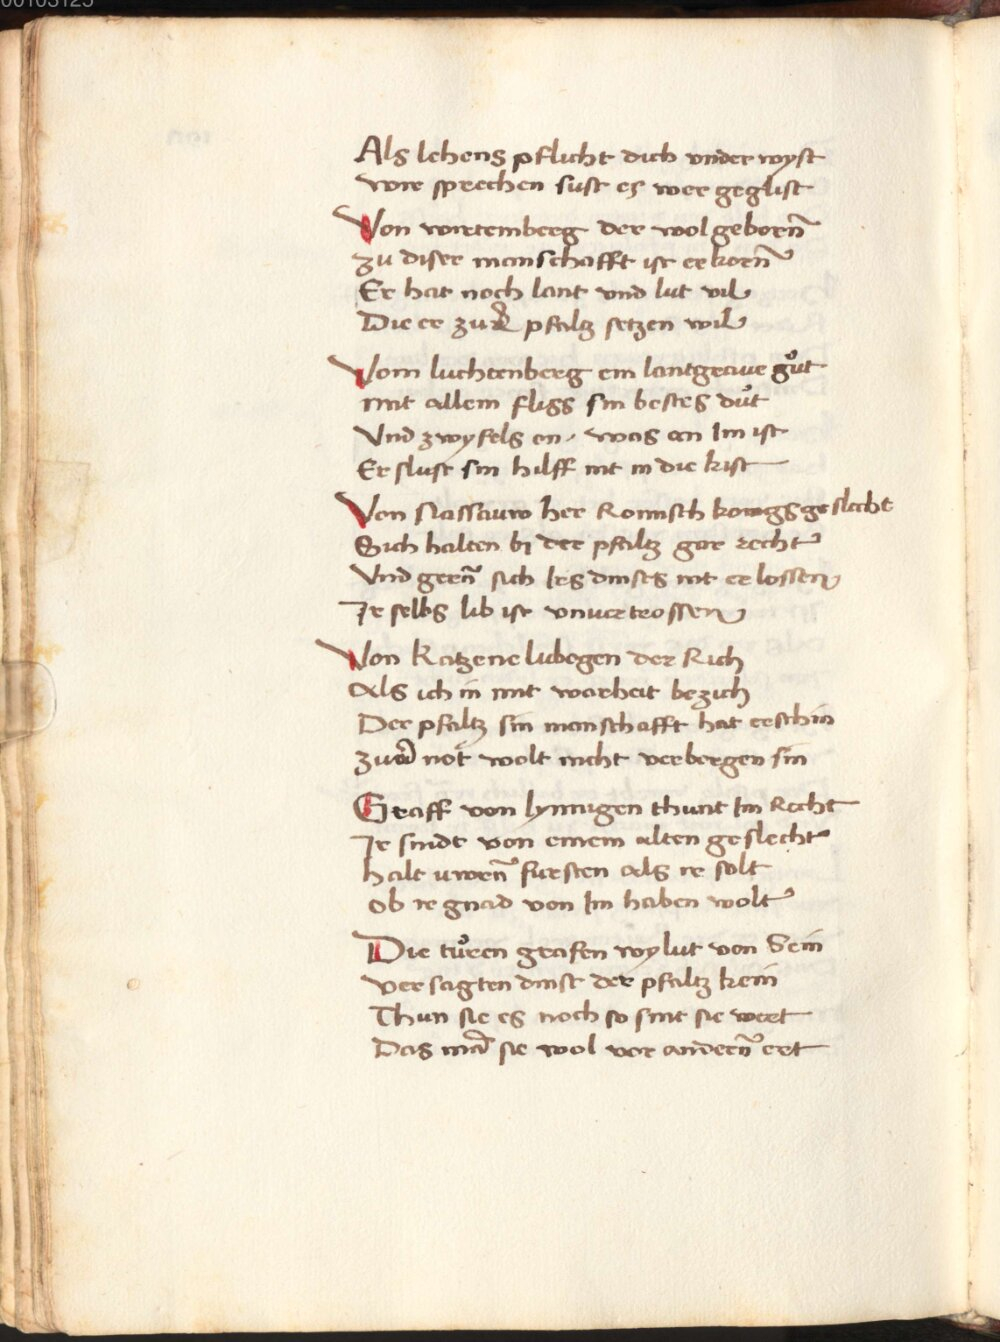 00103125
Als lehens pflicht dich vnder wyst
wir sprechen sust es wer geglist
Von wirtemberg der wolgeborn̄
zu diser manschafft ist erkorn̄
Er hat noch lant vnd lut vil
Die er zu der pfaltz setzen wil
Vom luchtenberg ein lantgraue gůt
mit allem fliss sin bestes důt
Vnd zwyfels on, was an Im ist
Er slust sin hilff nit in die kist
Von Nassauw her Romisch konigs geslecht
Sich halten bi der pfaltz gar recht
Vnd gern̄ sich Irs dinstes nit erlossen
Ir selbs lib ist vnuertrossen
Von Katzenelubogen der Rich
Als ich in mit warheit bezich
Der pfaltz sin manschafft hat erschin
zu not wolt nicht verbergen sin
Graff von lynnigen thunt Im Recht
Ir sindt von einem alten geslecht
halt uwern̄ fursten als ir solt
ob ir gnad von Im haben wolt
Die tůren grafen wylut von Sein
versagten dinst der pfaltz kein
Thun sie es noch so sint sie wert
Das man sie wol vor andern̄ ert